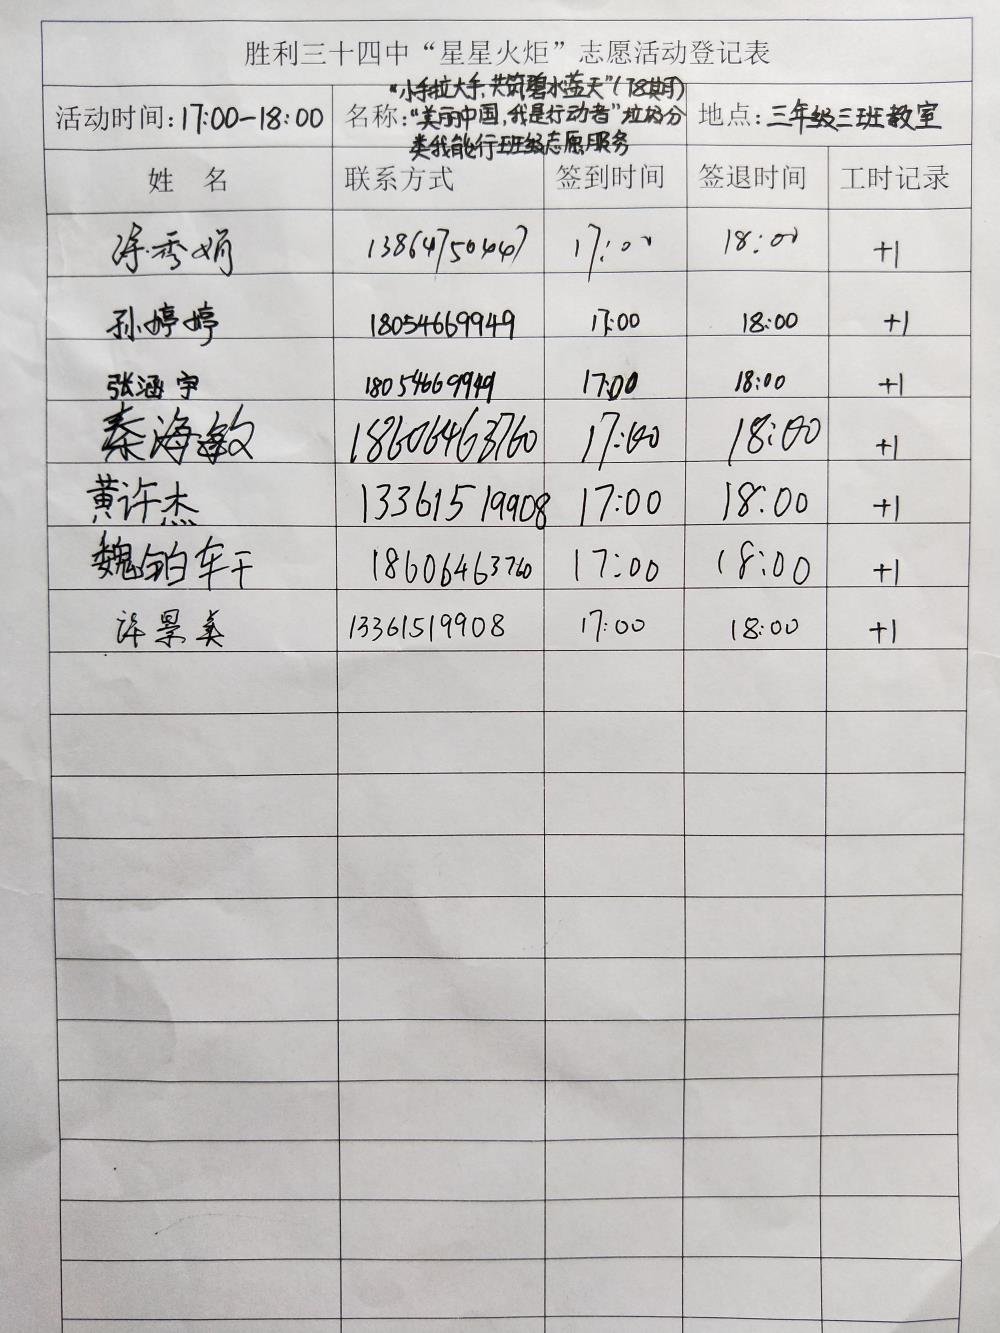 胜利三十四中“星星火炬”志愿活动登记表
“小手拉大手,共筑碧水蓝天”(78期)
活动时间:17:00-18:00 名称:“美丽中国,我是行动者”垃圾分 地点:三年级三班教室
类我能行班级志愿服务
姓 名 联系方式 签到时间 签退时间 工时记录
秀娟 13864750447 17:00 18:00 +1
孙婷婷 18054669949 17:00 18:00 +1
张涵宇 18054669949 17:00 18:00 +1
秦海敏 18606463760 17:00 18:00 +1
黄许杰 13361519908 17:00 18:00 +1
魏铂轩 18606463760 17:00 18:00 +1
许景美 13361519908 17:00 18:00 +1